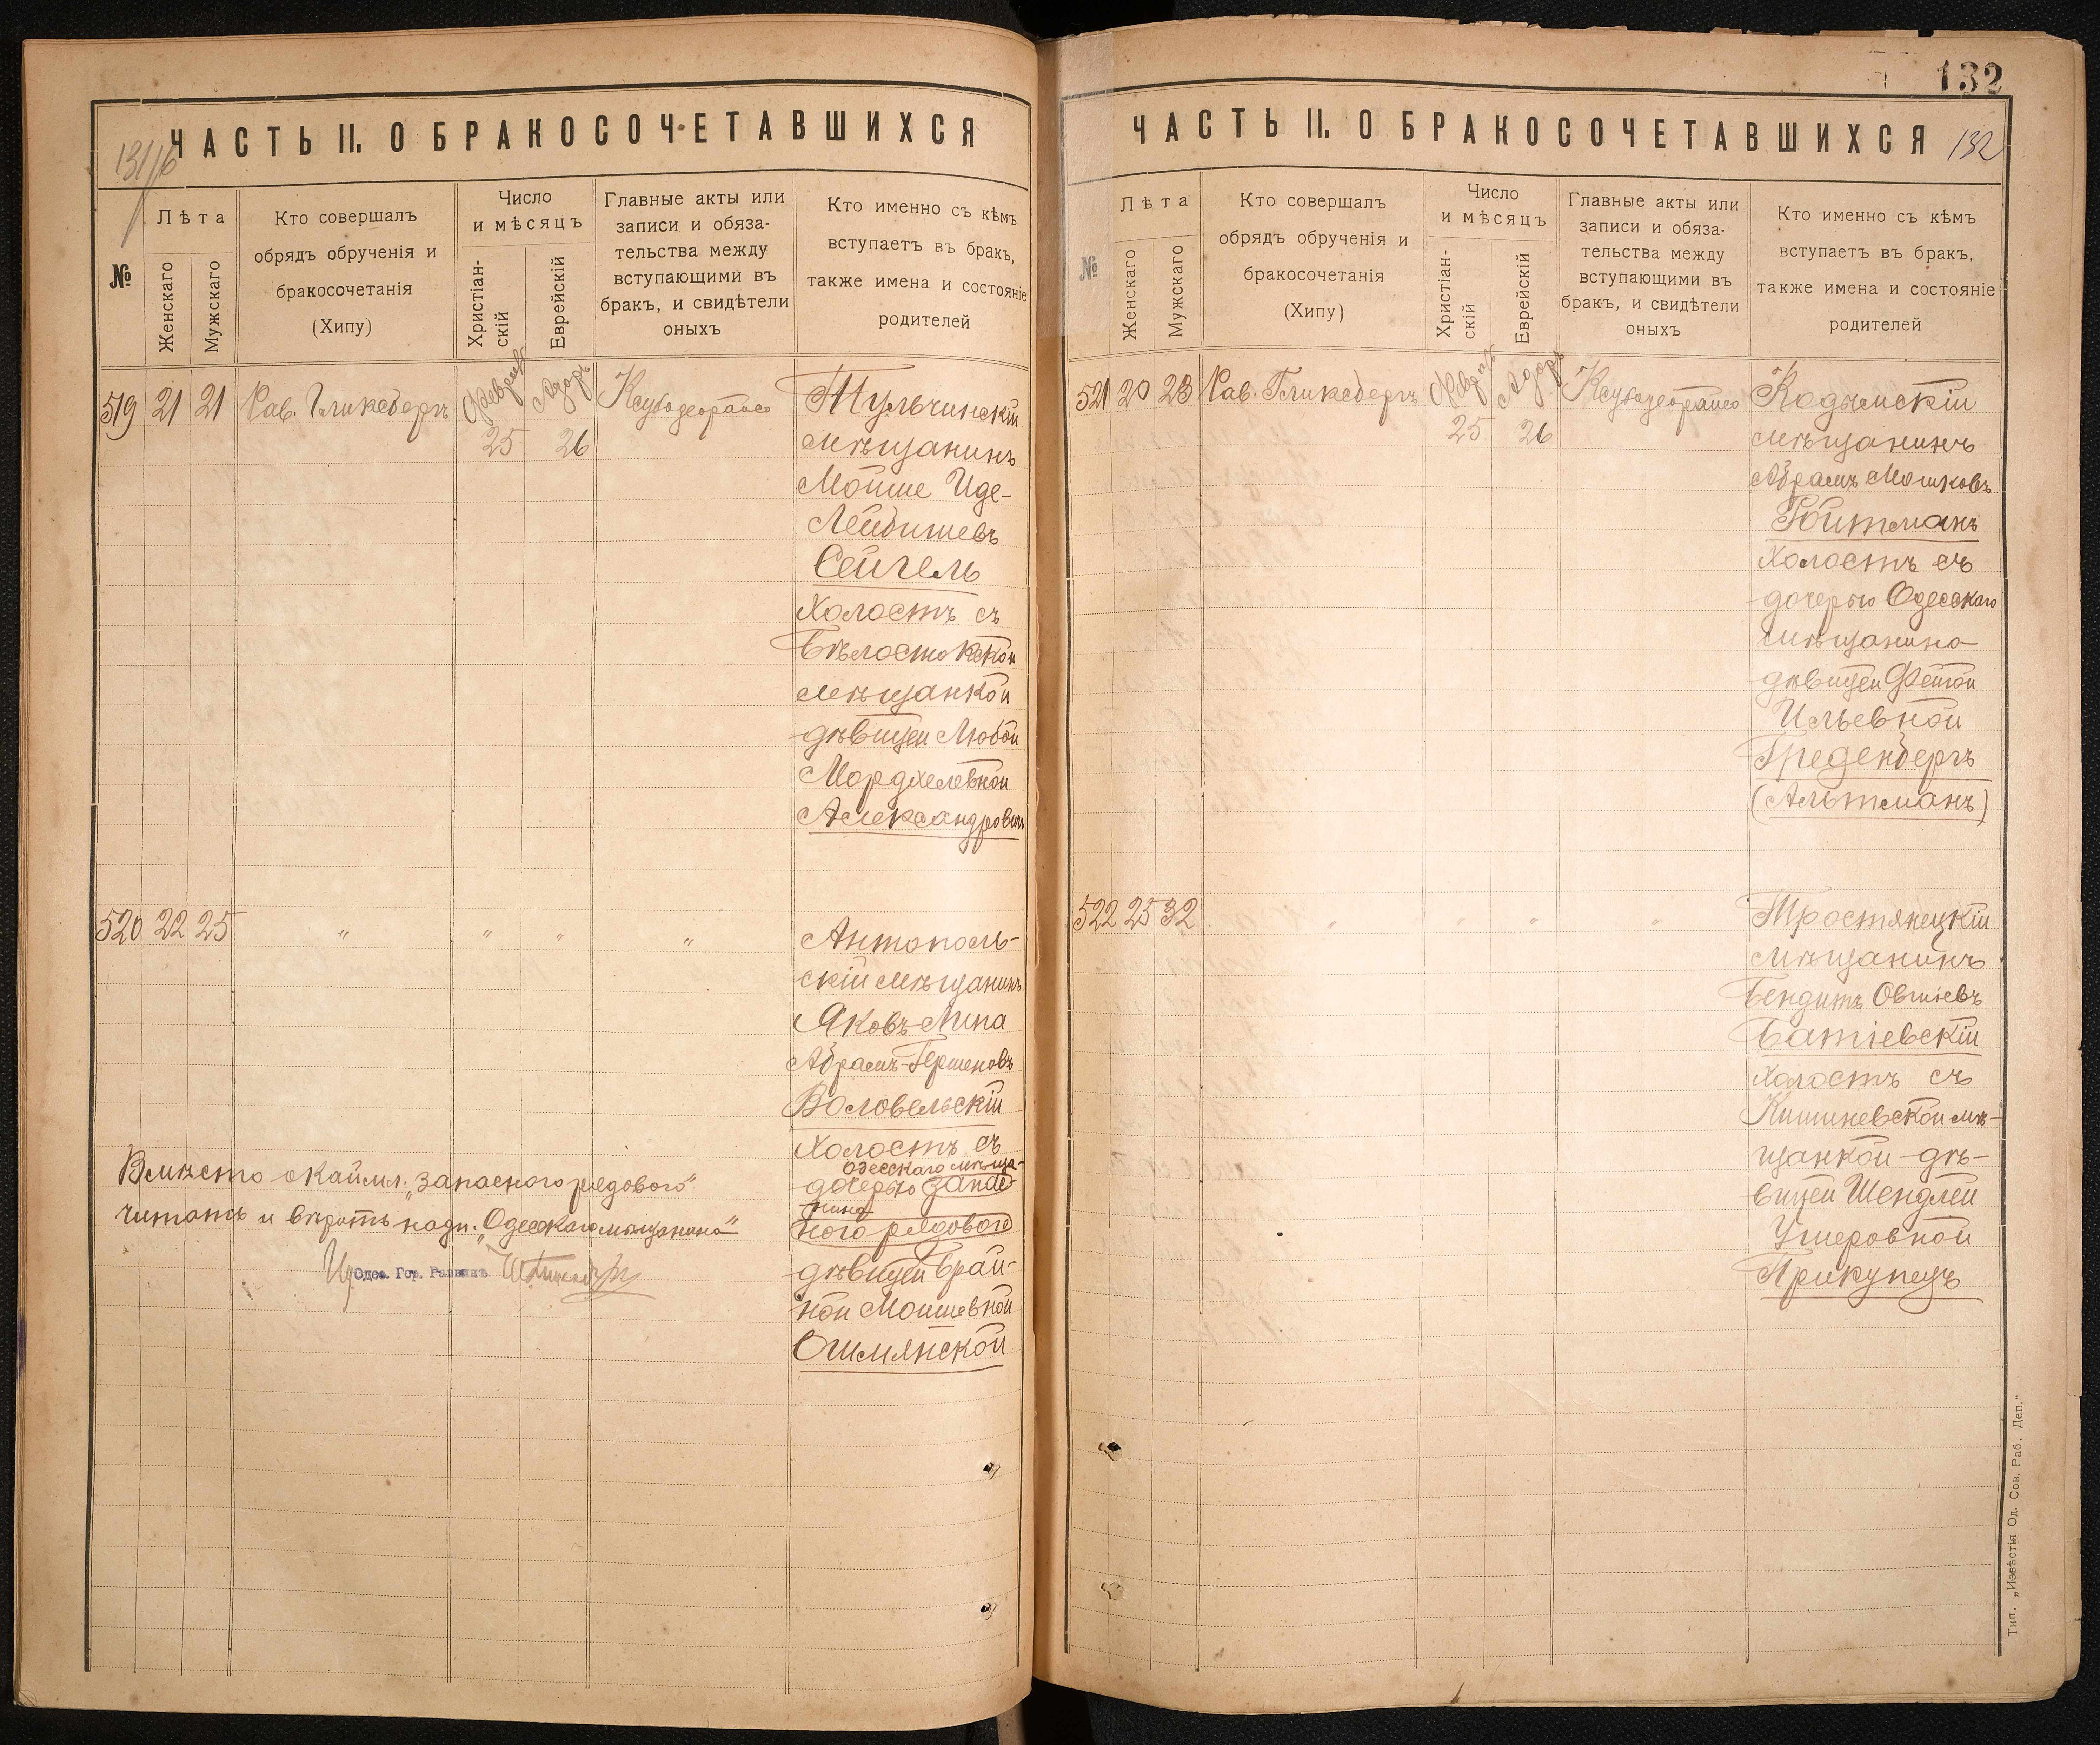 ЧАСТЬ II. О БРАКОСОЧЕТАВШИХСЯ
131/б
№
Лѣта
Женскаго
Мужскаго
Кто совершалъ
обрядъ обрученія и
бракосочетанія
(Хипу)
Число
и мѣсяцъ
Христіан-
скій
Еврейскій
Главные акты или
записи и обяза-
тельства между
вступающими въ
бракъ, и свидѣтели
оныхъ
Кто именно съ кѣмъ
вступаетъ въ бракъ,
также имена и состояніе
родителей
519 21 21 Рав. Гликсбергъ Февраль 25 Адоръ 26
Тульчинскій
мѣщанинъ
Мойше Иде-
Лейбишевъ
Сейгель
Холостъ съ
Бѣлостокской
мѣщанкой
дѣвицей Любой
Мордхелевной
Александровичъ
520 22 25 " " " "
Антополь-
скій мѣщанинъ
Яковъ-Липа
Абрамъ-Гершковъ
Воловельскій
Холостъ съ
Одесскаго мѣща-
дочерью запас-
нина
ного рядового
дѣвицей Брай-
ной Мошевной
Ошмянской
Вмѣсто окаймл. "запасного рядового"
читать и вѣрить надп. "Одесскаго мѣщанина"
Одес. Гор. Раввинъ
132
ЧАСТЬ II. О БРАКОСОЧЕТАВШИХСЯ
132
№
Лѣта
Женскаго
Мужскаго
Кто совершалъ
обрядъ обрученія и
бракосочетанія
(Хипу)
Число
и мѣсяцъ
Христіан-
скій
Еврейскій
Главные акты или
записи и обяза-
тельства между
вступающими въ
бракъ, и свидѣтели
оныхъ
Кто именно съ кѣмъ
вступаетъ въ бракъ,
также имена и состояніе
родителей
521 20 23 Рав. Гликсбергъ Февраль 25 Адоръ 26
Кодымскій
мѣщанинъ
Абрамъ Мошковъ
Ройтманъ
Холостъ съ
дочерью Одесскаго
мѣщанина
дѣвицей Фейгой
Ильевной
Греденбергъ
(Альтманъ)
522 25 32 " " " "
Тростянецкій
мѣщанинъ
Бендитъ Овшіевъ
Батіевскій
Холостъ съ
Кишиневской мѣ-
щанкой дѣ-
вицей Шендлей
Ушеровной
Прикупецъ
Тип. „Извѣстія Од. Сов. Раб. Деп."